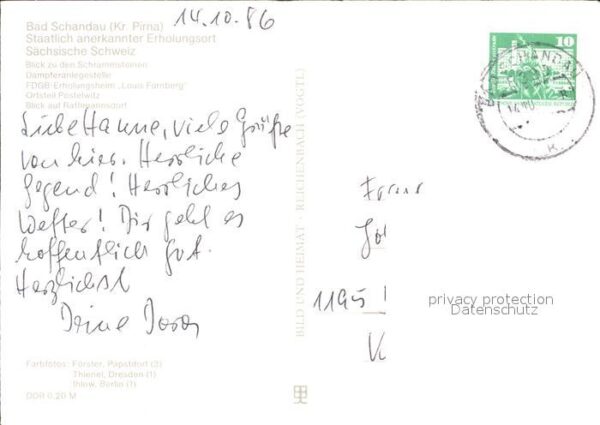 14.10.86
Bad Schandau (Kr. Pirna)
Staatlich anerkannter Erholungsort
Sächsische Schweiz
Blick zu den Schrammsteinen
Dampferanlegestelle
FDGB-Erholungsheim „Louis Fürnberg“
Ortsteil Postelwitz
Blick auf Rathmannsdorf
Liebe Hanne, viele Grüße
von hier. Herrliche
Gegend! Herrliches
Wetter! Dir geht es
hoffentlich gut.
Herzlichst
Deine
Farbfotos: Förster, Papstdorf (3)
Thienel, Dresden (1)
Ihlow, Berlin (1)
DDR 0,20 M
BILD UND HEIMAT · REICHENBACH (VOGTL)
10
1195
privacy protection
Datenschutz